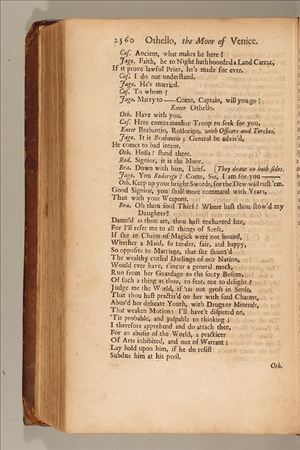 2560 Othello, the Moor of Venice.
Cas. Ancient, what makes he here?
Jago. Faith, he to Night hath boorded a Land Carrac,
If it prove lawful Prize, he's made for ever.
Cas. I do not understand.
Jago. He's married.
Cas. To whom?
Jago. Marry to — Come, Captain, will you go?
Enter Othello.
Oth. Have with you.
Cas. Here comes another Troop to seek for you.
Enter Brabantio, Rodorigo, with Officers and Torches.
Jago. It is Brabantio; General be advis'd,
He comes to bad intent.
Oth. Holla! stand there.
Rod. Signior, it is the Moor.
Bra. Down with him, Thief. [They draw on both sides.
Jago. You Rodorigo? Come, Sir, I am for you —
Oth. Keep up your bright Swords, for the Dew will rust 'em.
Good Signior, you shall more command with Years,
Than with your Weapons.
Bra. Oh thou foul Thief! Where hast thou stow'd my
Daughter?
Damn'd as thou art, thou hast enchanted her,
For I'll refer me to all things of Sense,
If she in Chains of Magick were not bound,
Whether a Maid, so tender, fair, and happy,
So opposite to Marriage, that she shunn'd
The wealthy curled Darlings of our Nation,
Would ever have, t'incur a general mock,
Run from her Guardage to the sooty Bosom,
Of such a thing as thou, to fear, not to delight?
Judge me the World, if 'tis not gross in Sense,
That thou hast practis'd on her with foul Charms,
Abus'd her delicate Youth, with Drugs or Minerals,
That weaken Motion: I'll have't disputed on,
'Tis probable, and palpable to thinking;
I therefore apprehend and do attach thee,
For an abuser of the World, a practicer
Of Arts inhibited, and out of Warrant;
Lay hold upon him, if he do resist
Subdue him at his peril.
Oth.